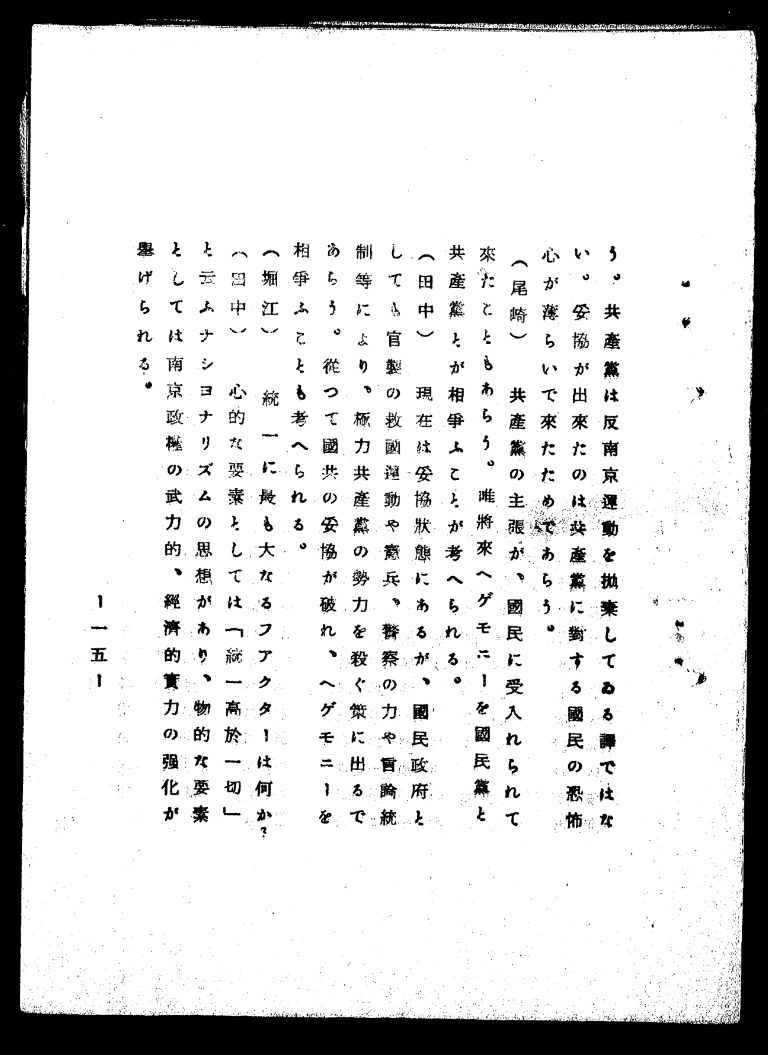 う。共產黨は反南京運動を拋棄してゐる譯ではな
い。妥協が出來たのは共產黨に對する國民の恐怖
心が薄らいで來たためであらう。
（尾崎）　共產黨の主張が、國民に受入れられて
來たこともあらう。唯將來ヘゲモニーを國民黨と
共產黨とが相爭ふことが考へられる。
（田中）　現在は妥協狀態にあるが、國民政府と
しても官製の救國運動や憲兵、警察の力や言論統
制等により、極力共產黨の勢力を殺ぐ策に出るで
あらう。從つて國共の妥協が破れ、ヘゲモニーを
相爭ふことも考へられる。
（堀江）　統一に最も大なるフアクターは何か?
（田中）　心的な要素としては「統一高於一切」
と云ふナシヨナリズムの思想があり、物的な要素
としては南京政權の武力的、經濟的實力の强化が
擧げられる。
ー一五ー